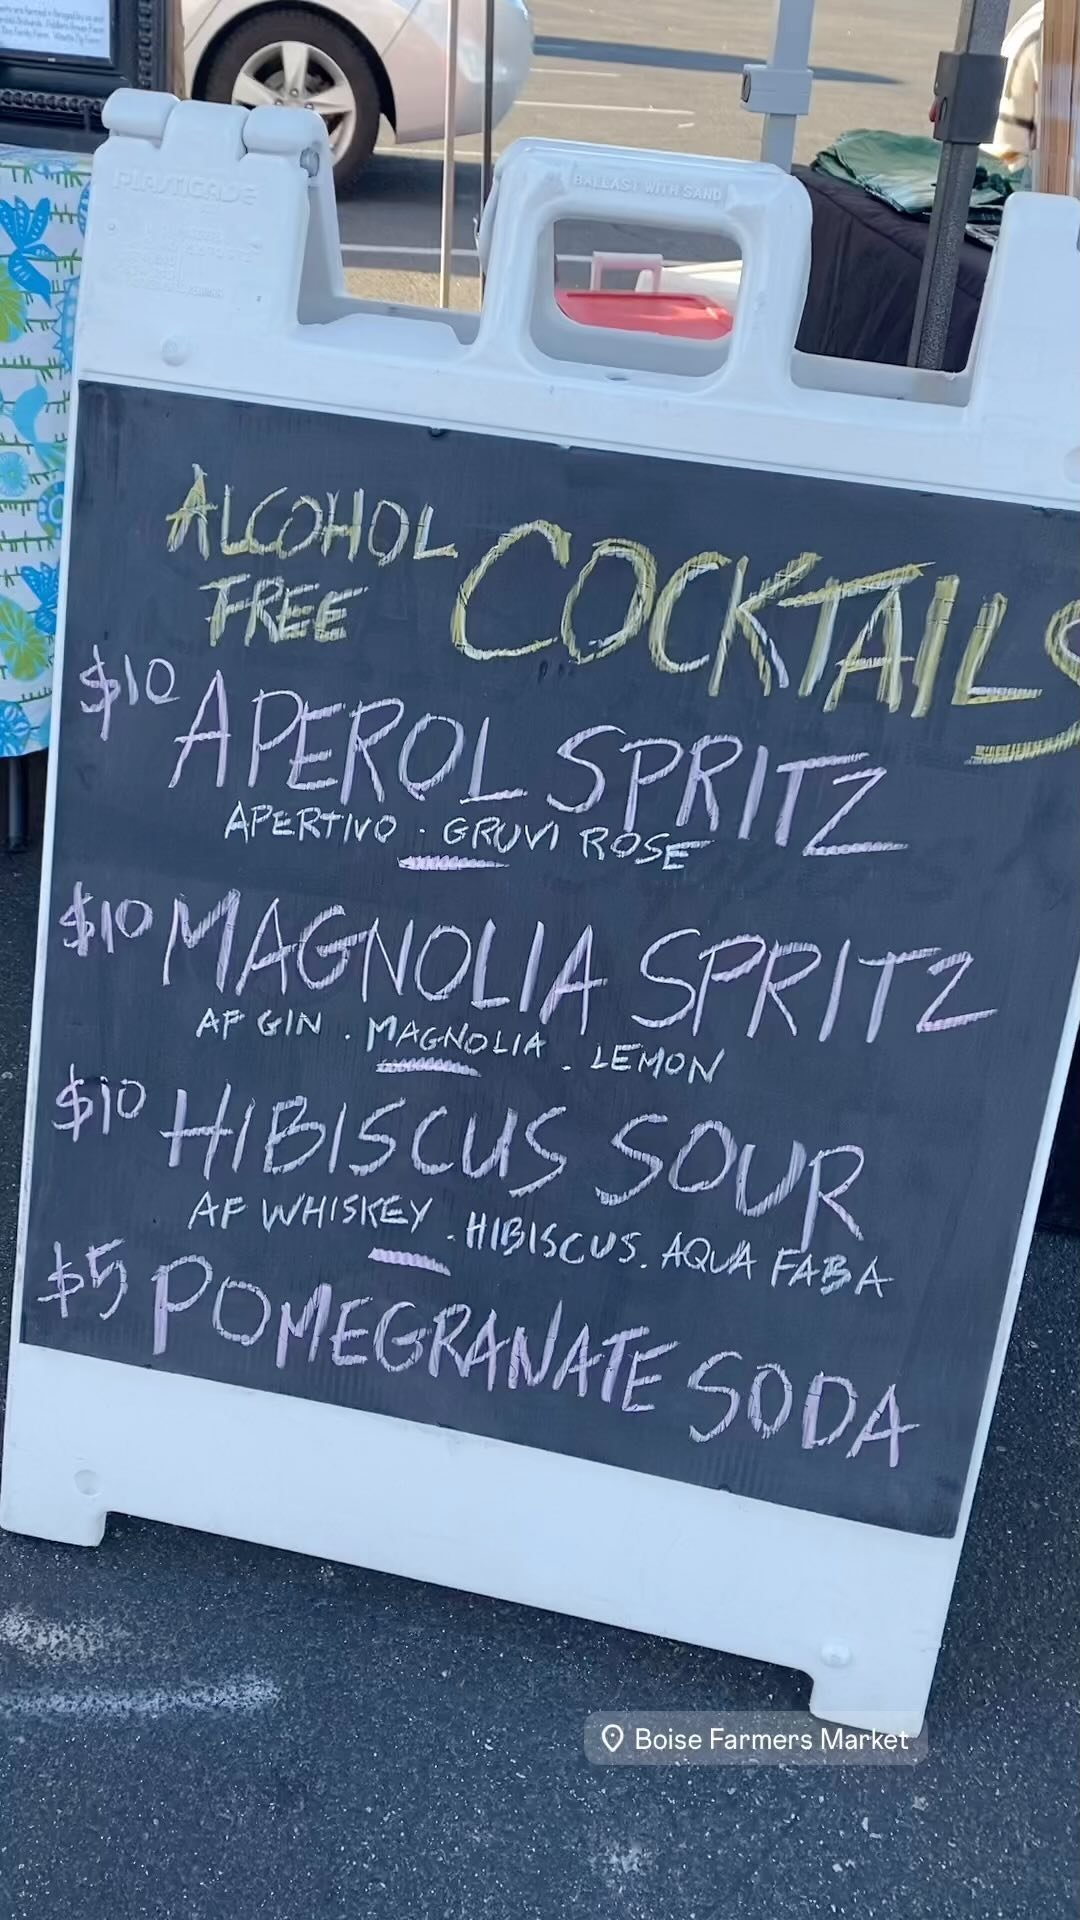 PLASTICADE
BALLAST WITH SAND
ALCOHOL FREE COCKTAILS
$10 APEROL SPRITZ
APERTIVO · GRUVI ROSE
$10 MAGNOLIA SPRITZ
AF GIN · MAGNOLIA · LEMON
$10 HIBISCUS SOUR
AF WHISKEY · HIBISCUS. AQUA FABA
$5 POMEGRANATE SODA
Boise Farmers Market